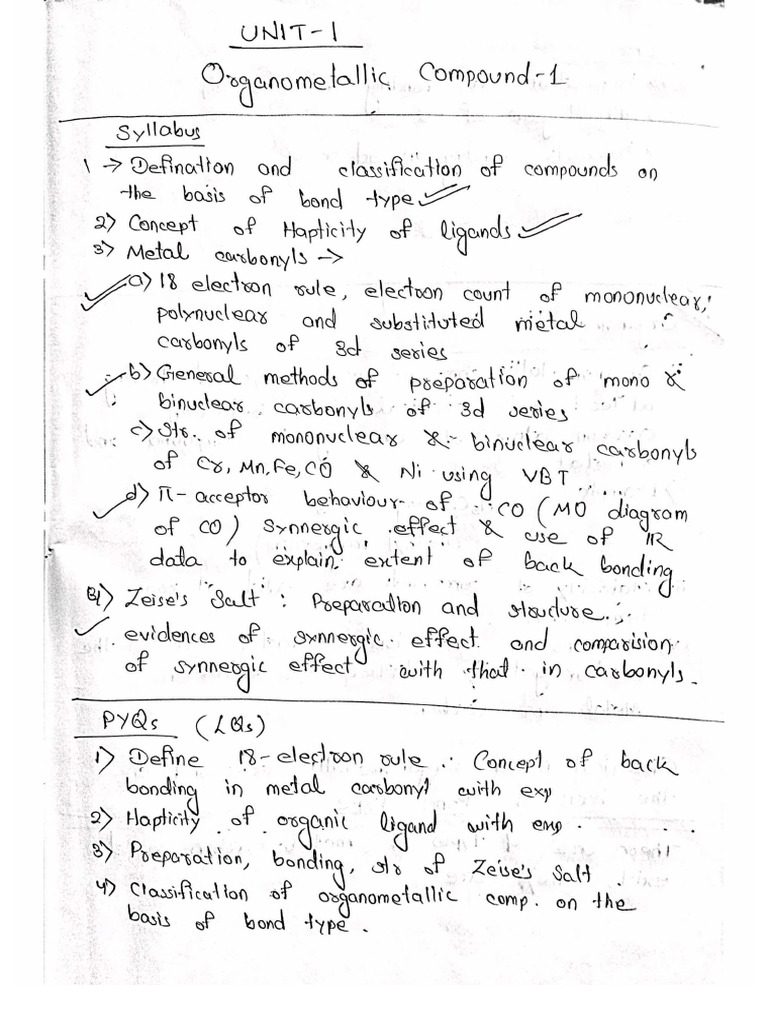 UNIT-1
Organometallic Compound-1
Syllabus
1 → Defination and classification of compounds on
the basis of bond type
2) Concept of Hapticity of ligands
3) Metal carbonyls →
a) 18 electron rule, electron count of mononuclear,
polynuclear and substituted metal
carbonyls of 3d series
b) General methods of preparation of mono &
binuclear carbonyls of 3d series
c) Str. of mononuclear & binuclear carbonyls
of Cr, Mn, Fe, CO & Ni using VBT
d) π-acceptor behaviour of CO (MO diagram
of CO) synnergic effect & use of IR
data to explain extent of back bonding
Zeise's Salt : Preparation and structure.
evidences of synnergic effect and comparision
of synnergic effect with that in carbonyls.
PYQs (LQs)
1) Define 18-electron rule. Concept of back
bonding in metal carbonyl with exp
2) Hapticity of organic ligand with emp.
3) Preparation, bonding, str of Zeise's Salt.
4) Classification of organometallic comp. on the
basis of bond type.